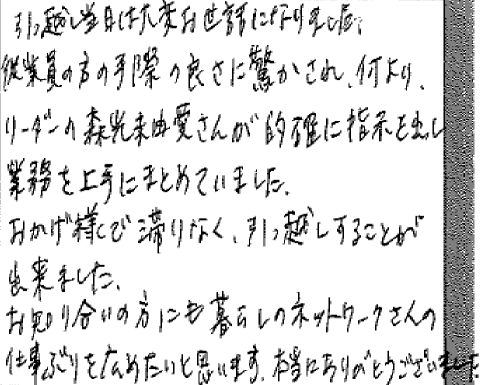 引っ越し当日は大変お世話になりました。
従業員の方の手際の良さに驚かされ、何より、
リーダーの森光未由愛さんが的確に指示を出し
業務を上手にまとめていました。
おかげ様で滞りなく、引っ越しすることが
出来ました。
お知り合いの方にも暮らしのネットワークさんの
仕事ぶりを広めたいと思います。本当にありがとうございました